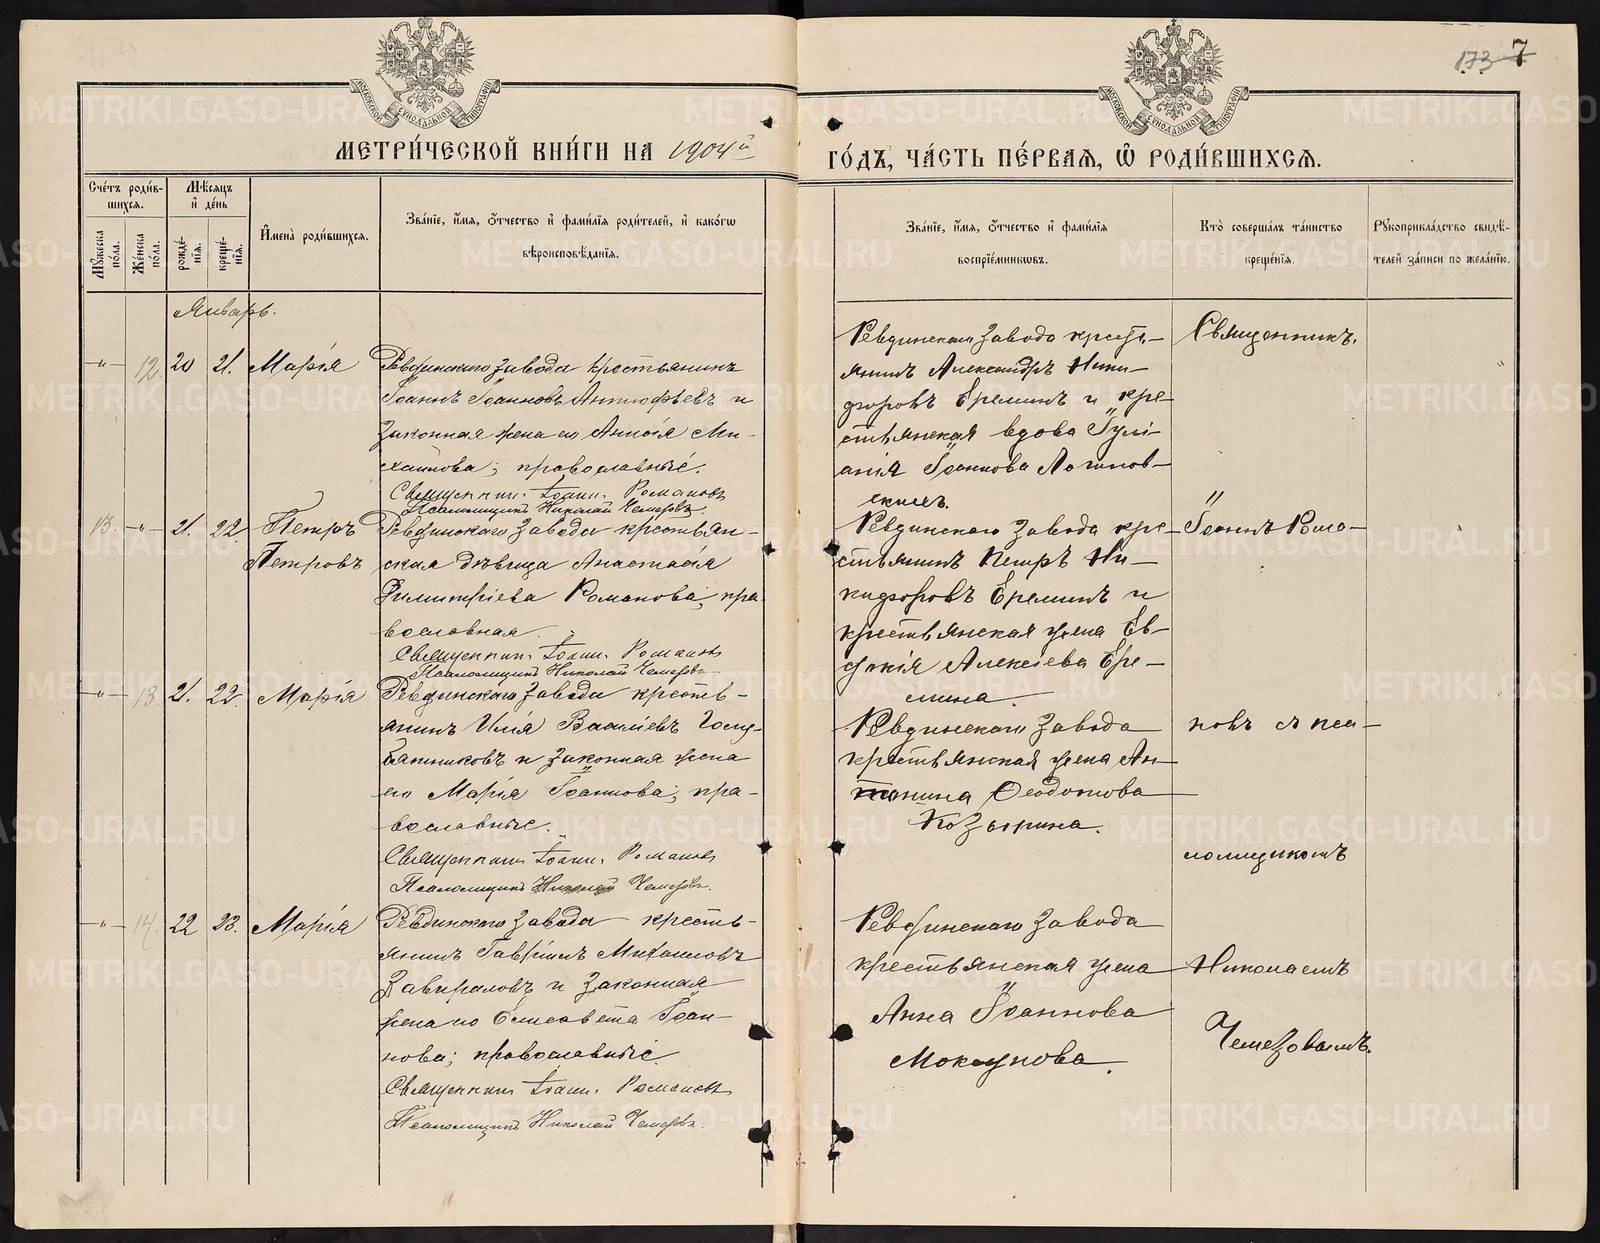 173 7
МОСКОВСКОЙ СѴНОДАЛЬНОЙ ТИПОГРАФІИ
МОСКОВСКОЙ СѴНОДАЛЬНОЙ ТИПОГРАФІИ
МЕТРИ́ЧЕСКОЙ КНИ́ГИ НА 1904й
ГО́ДЪ, ЧА́СТЬ ПЕ́РВАѦ, Ѽ РОДИ́ВШИХСѦ.
Сче́тъ роди́в-
шихсѧ.
Мꙋ́жеска по́ла.
Же́нска по́ла.
Мѣ́сѧцъ
и҆ де́нь
рожде́-
нїѧ.
креще́-
нїѧ.
И҆мена̀ роди́вшихсѧ.
Зва́нїе, и҆́мѧ, ѻ҆́тчество и҆ фами́лїѧ роди́телей, и҆ како́гѡ
вѣроисповѣ́данїѧ.
Зва́нїе, и҆́мѧ, ѻ҆́тчество и҆ фами́лїѧ
воспрїе́мникѡвъ.
Кто̀ соверша́лъ та́инство
креще́нїѧ.
Рꙋкоприкла́дство свидѣ́-
телей за́писи по жела́нїю.
Январь.
-"- 12. 20 21. Марія
Ревдинскаго завода крестьянинъ
Іоаннъ Іоанновъ Антюфьевъ и
законная жена его Анисія Ми-
хаилова; православные.
Священник Іоанн Романовъ
Псаломщикъ Николай Чемезовъ.
Ревдинскаго завода кресть-
янинъ Александръ Ники-
форовъ Ереминъ и кре-
стьянская вдова Іулі-
анія Іоаннова Логинов-
скихъ.
Священникъ
13. -"- 21. 22. Петръ
Петровъ
Ревдинскаго завода крестьян-
ская дѣвица Анастасія
Димитріева Романова; пра-
вославная.
Священник Іоанн Романовъ
Псаломщикъ Николай Чемезовъ
Ревдинскаго завода кре-
стьянинъ Петръ Ни-
кифоровъ Ереминъ и
крестьянская жена Ев-
фимія Алексіева Ере-
мина.
Іоаннъ Рома-
-"- 13. 21. 22. Марія
Ревдинскаго завода кресть-
янинъ Илія Василіевъ Голу-
бятниковъ и законная жена
его Марія Іоаннова; пра-
вославные.
Священник Іоанн Романовъ
Псаломщикъ Николай Чемезовъ.
Ревдинскаго завода
крестьянская жена Ан-
тонина Ѳеодотова
Козырина.
новъ съ пса-
ломщикомъ
-"- 14. 22 23. Марія
Ревдинскаго завода кресть-
янинъ Гавріилъ Михаиловъ
Завираловъ и законная
жена его Елисавета Іоан-
нова; православные.
Священник Іоанн Романовъ
Псаломщикъ Николай Чемезовъ.
Ревдинскаго завода
крестьянская жена
Анна Іоаннова
Мокрунова.
Николаемъ
Чемезовымъ.